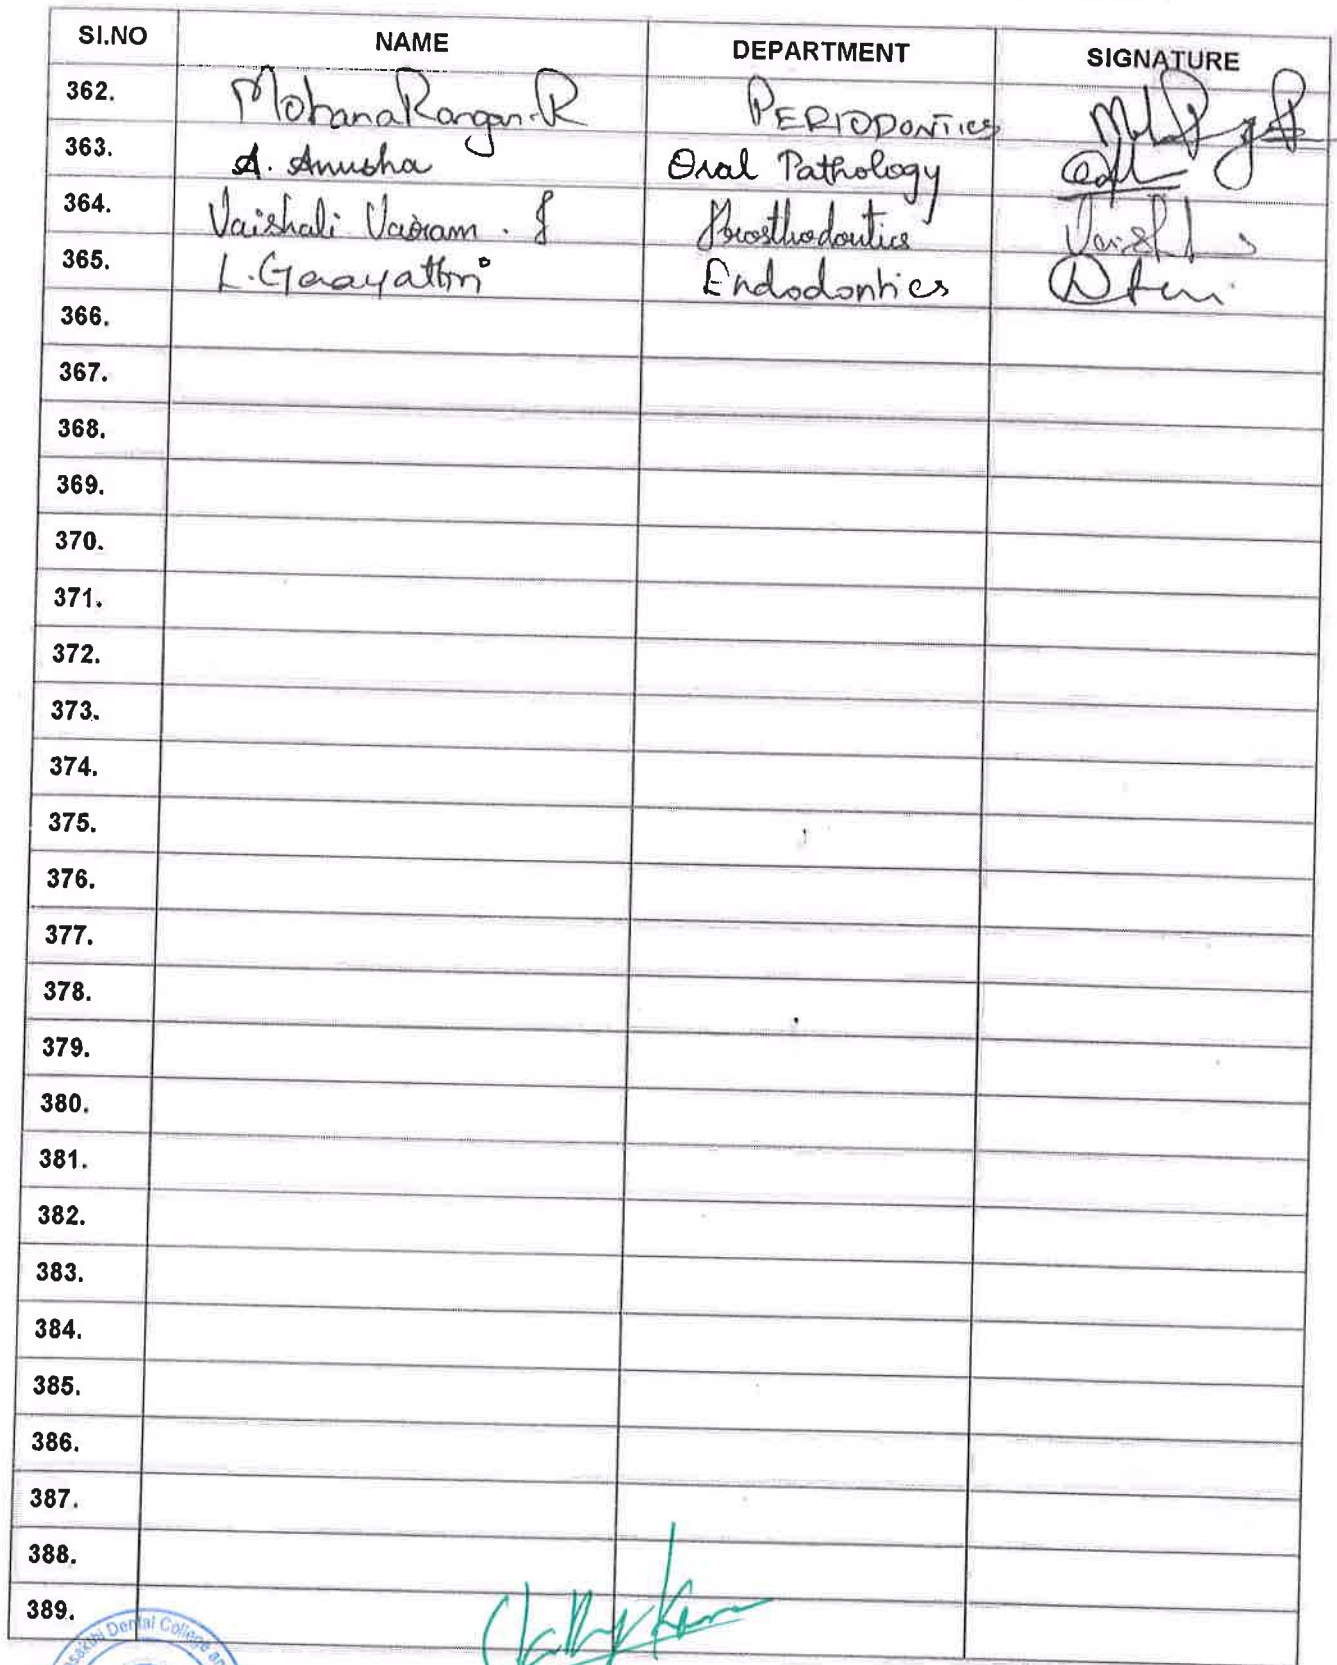 SI.NO NAME DEPARTMENT SIGNATURE
362. MohanaRangan.R PERIODONTICS
363. A. Anusha Oral Pathology
364. Vaishali Vairam . J Prosthodontics
365. L.Gaayathri Endodontics
366.
367.
368.
369.
370.
371.
372.
373.
374.
375.
376.
377.
378.
379.
380.
381.
382.
383.
384.
385.
386.
387.
388.
389.
Dental College